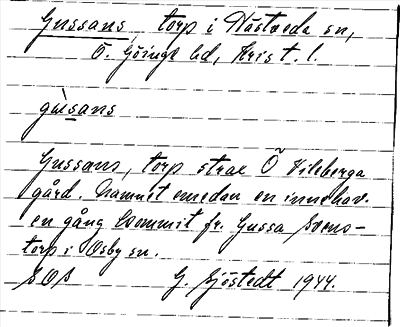 Gussans, torp i Nåstveda sn,
Ö. Göinge hd, Krist. l.
gu̇̀sans
Gussans, torp strax Ö Vileberga
gård. Namnet emedan en innehav.
en gång kommit fr. Gussa Svens-
torp i Osby sn.
SOS G. Sjöstedt 1944.